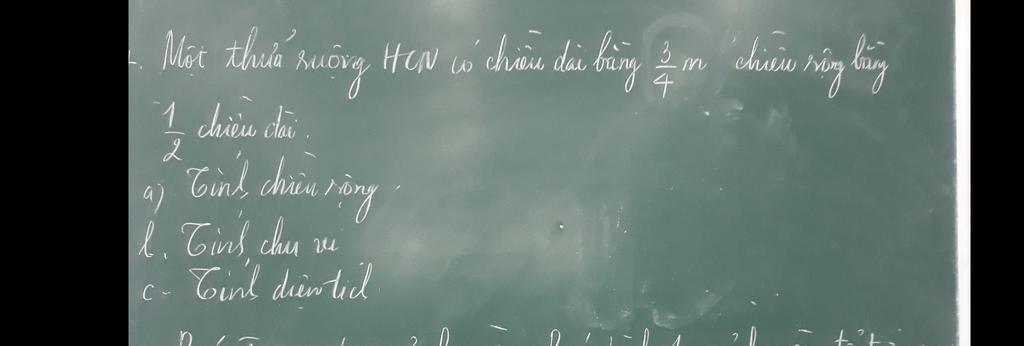 Một thửa ruộng HCN có chiều dài bằng 3/4 m chiều rộng bằng
1/2 chiều dài.
a) Tính chiều rộng
b. Tính chu vi
c - Tính diện tích